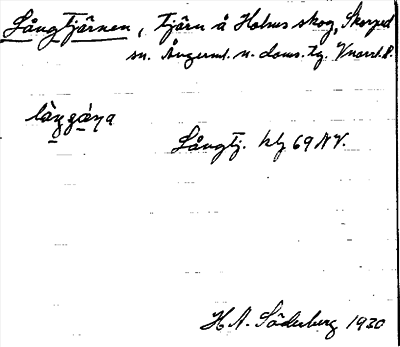 Långtjärnen, tjärn å Holms skog, Skorped
sn. Ångerml. n. doms. hg. Vnorrl. l.
làŋgáŋa
Långtj. kbl 69 NV.
H. A. Söderberg 1930